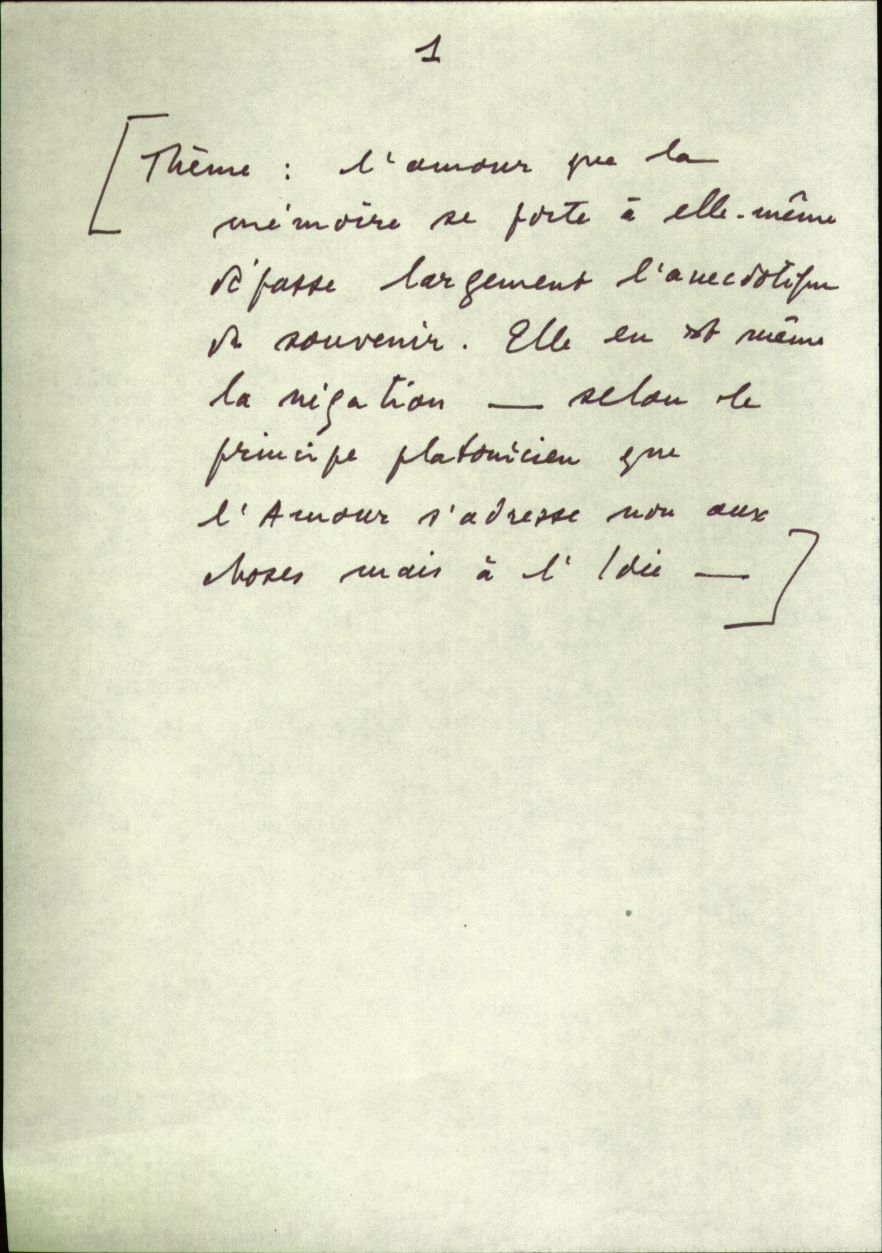 1
[Thème : l'amour que la
mémoire se porte à elle-même
dépasse largement l'anecdotique
du souvenir. Elle en est même
la négation — selon le
principe platonicien que
l'Amour s'adresse non aux
choses mais à l'Idée —]